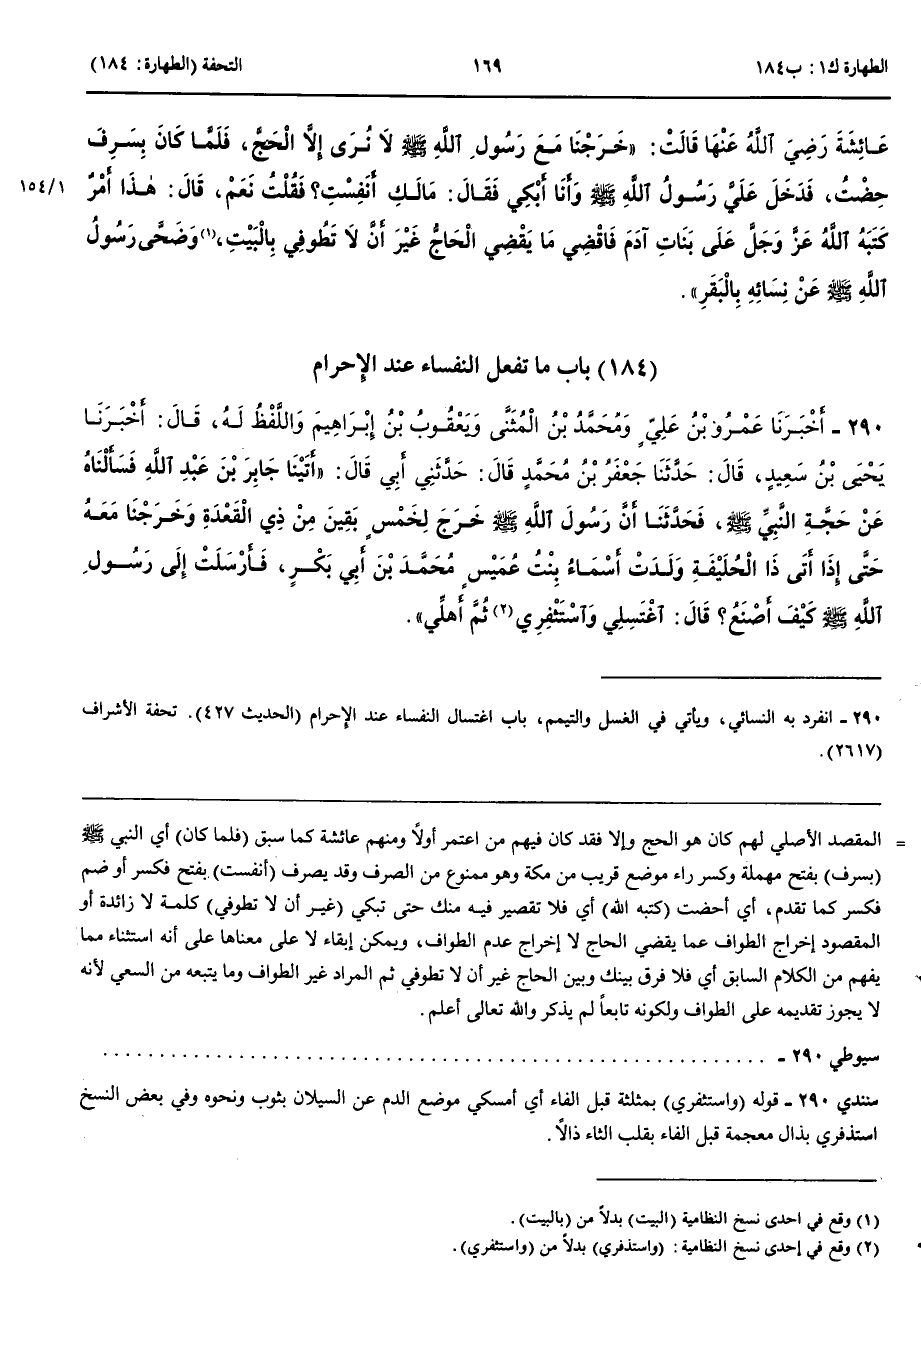 الطهارة ك١: ب١٨٤ ١٦٩ التحفة (الطهارة: ١٨٤)
عَائِشَةَ رَضِيَ ٱللَّهُ عَنْهَا قَالَتْ: «خَرَجْنَا مَعَ رَسُولِ ٱللَّهِ ﷺ لَا نُرَى إِلَّا الْحَجَّ، فَلَمَّا كَانَ بِسَرِفَ
حِضْتُ، فَدَخَلَ عَلَيَّ رَسُولُ ٱللَّهِ ﷺ وَأَنَا أَبْكِي فَقَالَ: مَالَكِ أَنَفِسْتِ؟ فَقُلْتُ نَعَمْ، قَالَ: هٰذَا أَمْرٌ ١٥٤/١
كَتَبَهُ ٱللَّهُ عَزَّ وَجَلَّ عَلَى بَنَاتِ آدَمَ فَاقْضِي مَا يَقْضِي الْحَاجُّ غَيْرَ أَنْ لَا تَطُوفِي بِالْبَيْتِ،(١) وَضَحَّى رَسُولُ
ٱللَّهِ ﷺ عَنْ نِسَائِهِ بِالْبَقَرِ».
(١٨٤) باب ما تفعل النفساء عند الإحرام
٢٩٠ ـ أَخْبَرَنَا عَمْرُو بْنُ عَلِيٍّ وَمُحَمَّدُ بْنُ الْمُثَنَّى وَيَعْقُوبُ بْنُ إِبْرَاهِيمَ وَاللَّفْظُ لَهُ، قَالَ: أَخْبَرَنَا
يَحْيَى بْنُ سَعِيدٍ، قَالَ: حَدَّثَنَا جَعْفَرُ بْنُ مُحَمَّدٍ قَالَ: حَدَّثَنِي أَبِي قَالَ: «أَتَيْنَا جَابِرَ بْنَ عَبْدِ اللَّهِ فَسَأَلْنَاهُ
عَنْ حَجَّةِ النَّبِيِّ ﷺ، فَحَدَّثَنَا أَنَّ رَسُولَ اللَّهِ ﷺ خَرَجَ لِخَمْسٍ بَقِينَ مِنْ ذِي الْقَعْدَةِ وَخَرَجْنَا مَعَهُ
حَتَّى إِذَا أَتَى ذَا الْحُلَيْفَةِ وَلَدَتْ أَسْمَاءُ بِنْتُ عُمَيْسٍ مُحَمَّدَ بْنَ أَبِي بَكْرٍ، فَأَرْسَلَتْ إِلَى رَسُولِ
اللَّهِ ﷺ كَيْفَ أَصْنَعُ؟ قَالَ: ٱغْتَسِلِي وَٱسْتَثْفِرِي(٢) ثُمَّ أَهِلِّي».
٢٩٠ ـ انفرد به النسائي، ويأتي في الغسل والتيمم، باب اغتسال النفساء عند الإحرام (الحديث ٤٢٧). تحفة الأشراف
(٢٦١٧).
= المقصد الأصلي لهم كان هو الحج وإلا فقد كان فيهم من اعتمر أولاً ومنهم عائشة كما سبق (فلما كان) أي النبي ﷺ
(بسرف) بفتح مهملة وكسر راء موضع قريب من مكة وهو ممنوع من الصرف وقد يصرف (أنفست) بفتح فكسر أو ضم
فكسر كما تقدم، أي أحضت (كتبه الله) أي فلا تقصير فيه منك حتى تبكي (غير أن لا تطوفي) كلمة لا زائدة أو
المقصود إخراج الطواف عما يقضي الحاج لا إخراج عدم الطواف، ويمكن إبقاء لا على معناها على أنه استثناء مما
يفهم من الكلام السابق أي فلا فرق بينك وبين الحاج غير أن لا تطوفي ثم المراد غير الطواف وما يتبعه من السعي لأنه
لا يجوز تقديمه على الطواف ولكونه تابعاً لم يذكر والله تعالى أعلم.
سيوطي ٢٩٠ ـ . . . . . . . . . . . . . . . . . . . . . . . . . . . . . . . . . . . . . . . . . . . . . . . . . . . . . . . . . . .
سندي ٢٩٠ ـ قوله (واستثفري) بمثلثة قبل الفاء أي أمسكي موضع الدم عن السيلان بثوب ونحوه وفي بعض النسخ
استذفري بذال معجمة قبل الفاء بقلب الثاء ذالاً.
(١) وقع في احدى نسخ النظامية (البيت) بدلاً من (بالبيت).
(٢) وقع في إحدى نسخ النظامية: (واستذفري) بدلاً من (واستثفري).